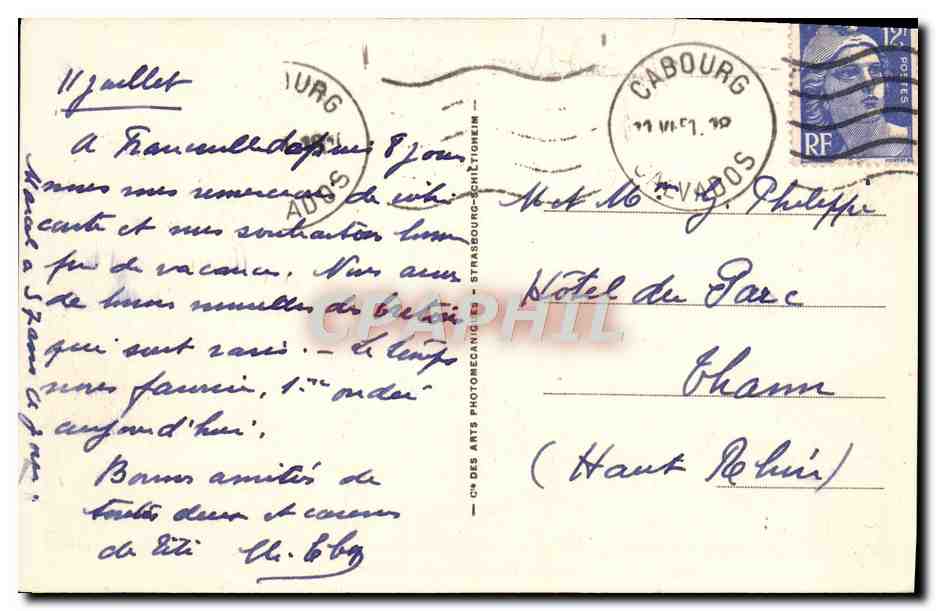 11 juillet
A Franceville depuis 8 jours
nous vous remercions de votre
carte et vous souhaitons bonne
fin de vacances. Nous avons
de bonnes nouvelles des bretons
qui sont ravis. - Le temps
nous favorise, 1ère ondée
aujourd'hui.
Bonnes amitiés de
toutes deux et caresses
de Titi
Marcel a 5 jours
CABOURG
CALVADOS
OURG
ADOS
12F
POSTES
RF
M et Mme G. Philippe
Hôtel du Parc
Thann
(Haut Rhin)
Cie DES ARTS PHOTOMECANIQUES - STRASBOURG-SCHILTIGHEIM
CPAPHIL